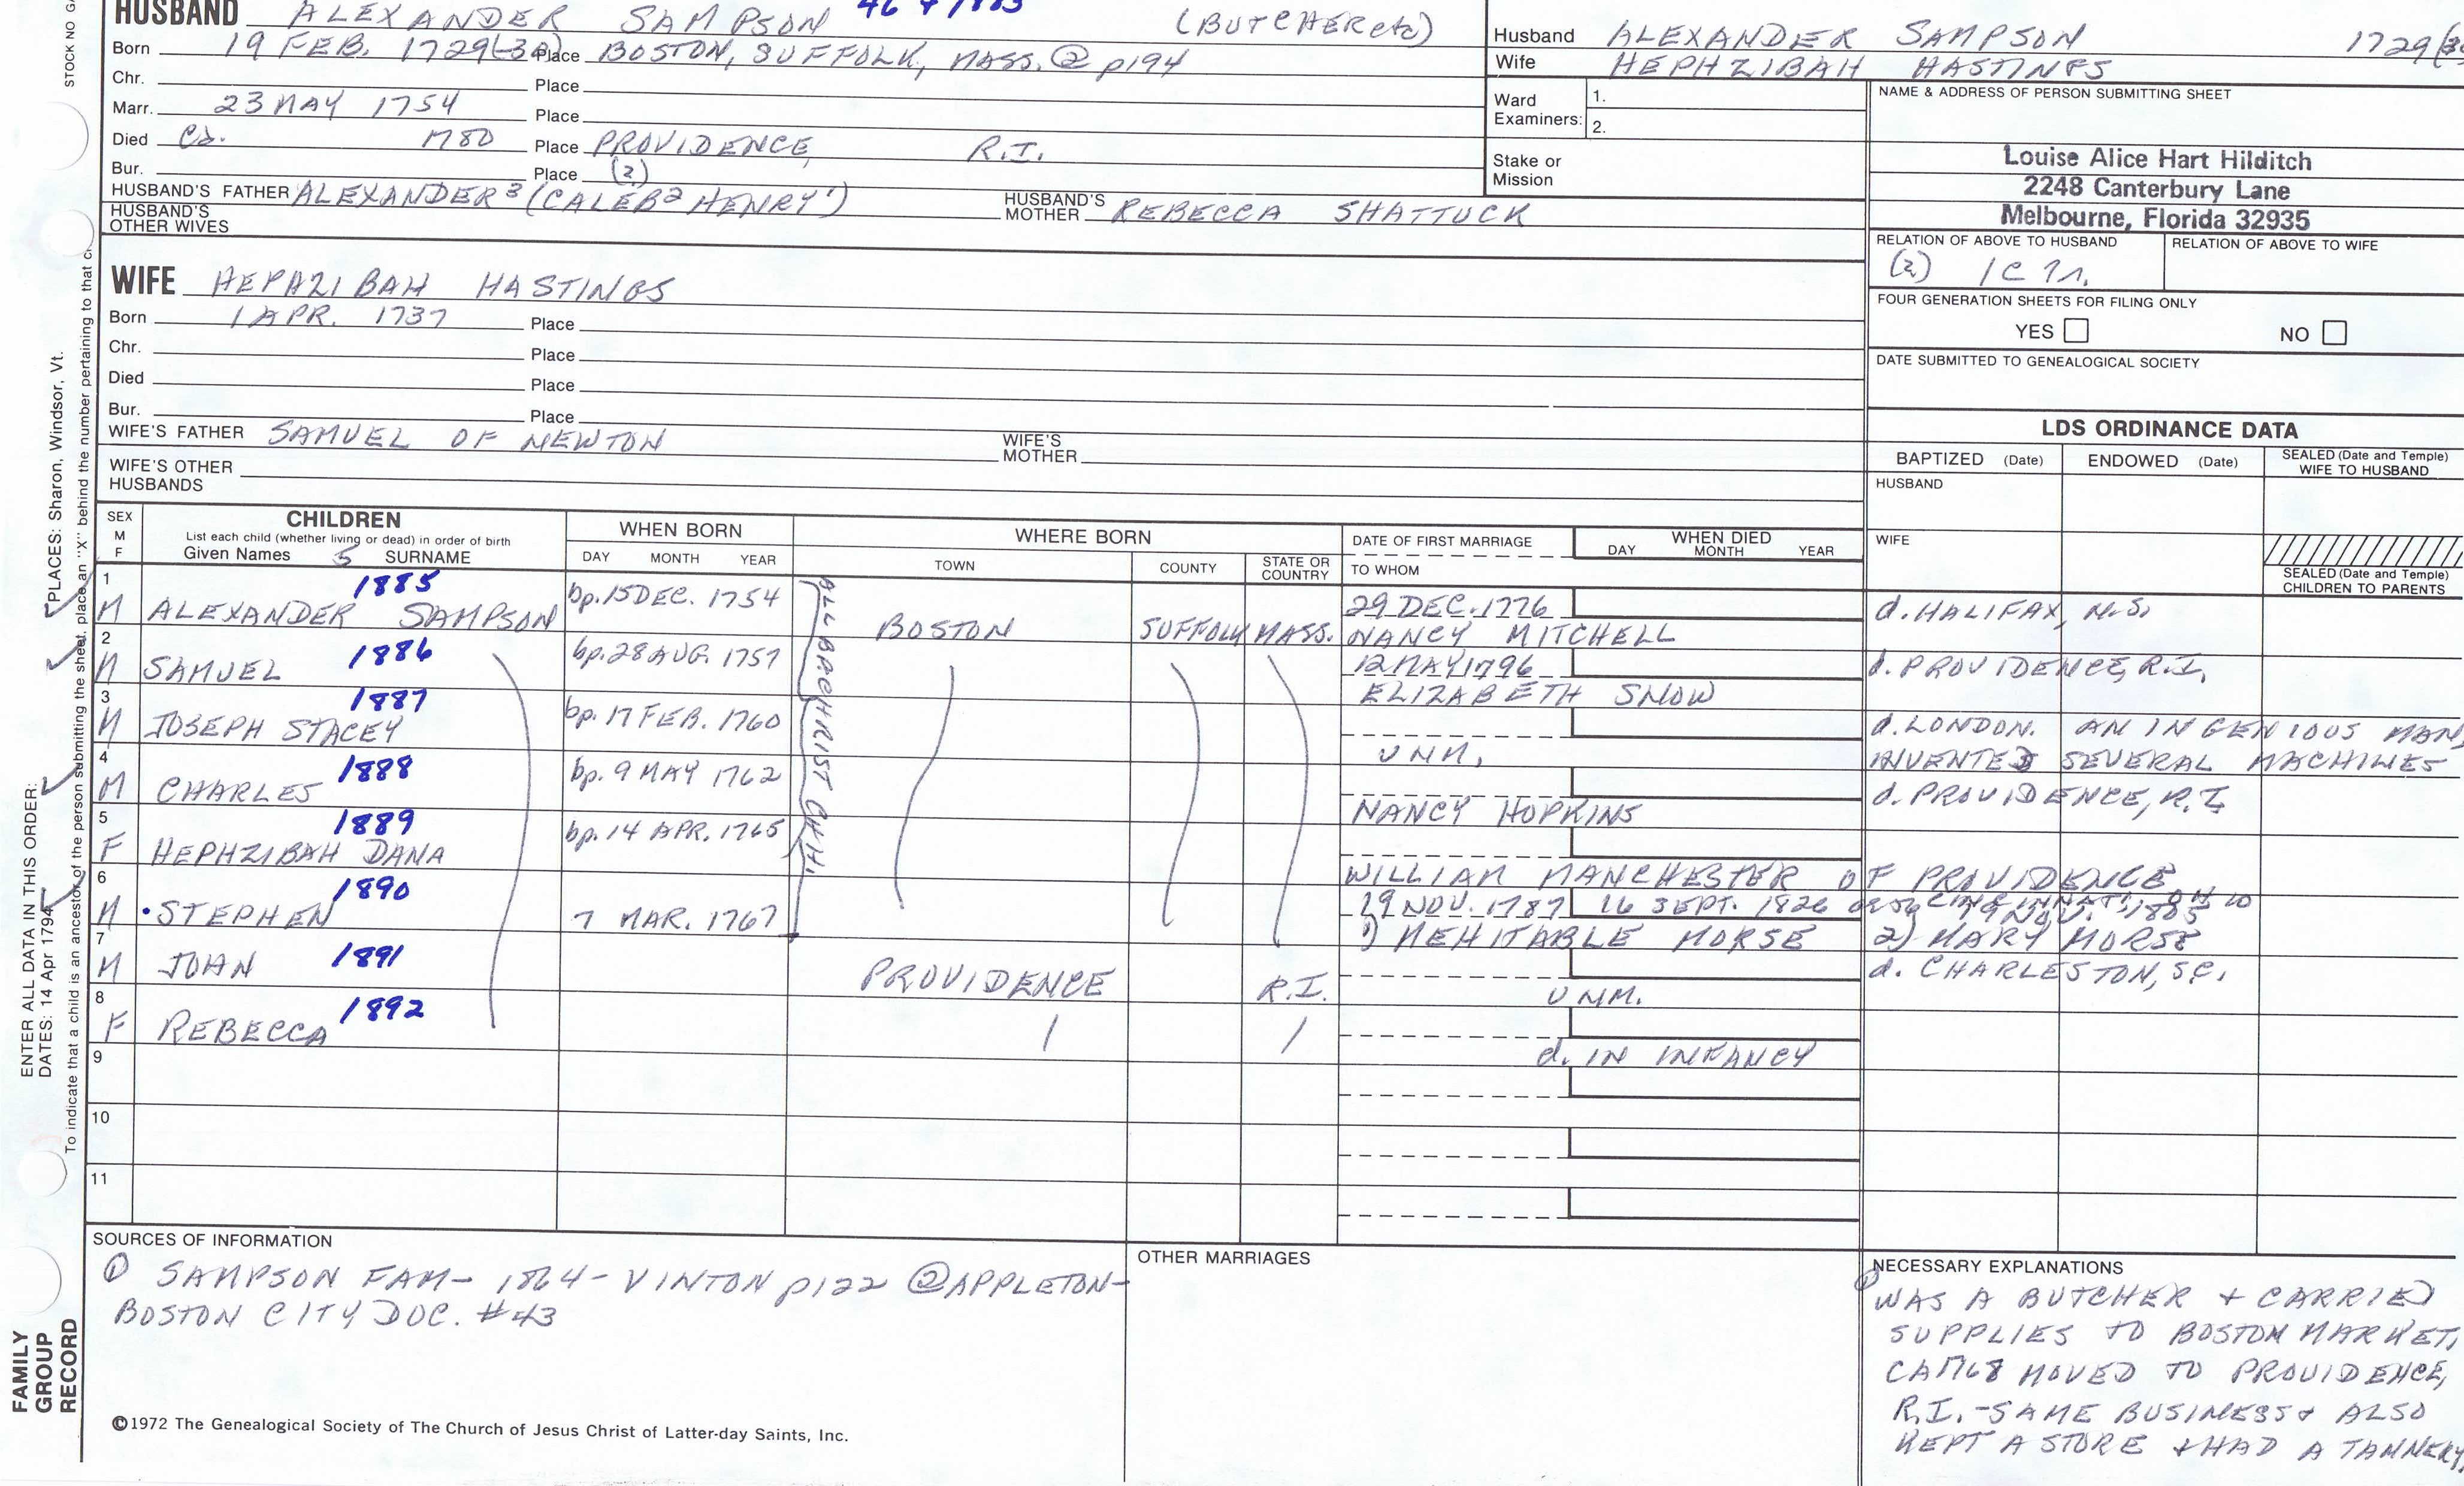 HUSBAND ALEXANDER SAMPSON (BUTCHER etc)
Born 19 FEB. 1729(-30) Place BOSTON, SUFFOLK, MASS. ② p194
Chr. Place
Marr. 23 MAY 1754 Place
Died Ca. 1780 Place PROVIDENCE, R.I.
Bur. Place (2)
HUSBAND'S FATHER ALEXANDER³ (CALEB² HENRY¹) HUSBAND'S MOTHER REBECCA SHATTUCK
HUSBAND'S OTHER WIVES
WIFE HEPHZIBAH HASTINGS
Born 1 APR. 1737 Place
Chr. Place
Died Place
Bur. Place
WIFE'S FATHER SAMUEL OF NEWTON WIFE'S MOTHER
WIFE'S OTHER HUSBANDS
Husband ALEXANDER SAMPSON
Wife HEPHZIBAH HASTINGS
Ward Examiners: 1.
2.
Stake or Mission
NAME & ADDRESS OF PERSON SUBMITTING SHEET
Louise Alice Hart Hilditch
2248 Canterbury Lane
Melbourne, Florida 32935
RELATION OF ABOVE TO HUSBAND RELATION OF ABOVE TO WIFE
(2) 1C 7r.
FOUR GENERATION SHEETS FOR FILING ONLY
YES NO
DATE SUBMITTED TO GENEALOGICAL SOCIETY
LDS ORDINANCE DATA
BAPTIZED (Date) ENDOWED (Date) SEALED (Date and Temple) WIFE TO HUSBAND
HUSBAND
WIFE
SEALED (Date and Temple) CHILDREN TO PARENTS
SEX M F
CHILDREN
List each child (whether living or dead) in order of birth
Given Names 5 SURNAME
WHEN BORN
DAY MONTH YEAR
WHERE BORN
TOWN COUNTY STATE OR COUNTRY
DATE OF FIRST MARRIAGE
TO WHOM
WHEN DIED
DAY MONTH YEAR
ALL BP CHRIST CHH.
1 1885
M ALEXANDER SAMPSON bp. 15 DEC. 1754 BOSTON SUFFOLK MASS. 29 DEC. 1776 NANCY MITCHELL d. HALIFAX, N.S.
2 1886
M SAMUEL bp. 28 AUG. 1757 12 MAY 1796 ELIZABETH SNOW d. PROVIDENCE, R.I.
3 1887
M JOSEPH STACEY bp. 17 FEB. 1760 UNM. d. LONDON. AN INGENIOUS MAN, INVENTED SEVERAL MACHINES
4 1888
M CHARLES bp. 9 MAY 1762 NANCY HOPKINS d. PROVIDENCE, R.I.
5 1889
F HEPHZIBAH DANA bp. 14 APR. 1765 WILLIAM MANCHESTER OF PROVIDENCE
6 1890
M •STEPHEN 7 MAR. 1767 29 NOV. 1787 16 SEPT. 1826 CINCINNATI, OHIO
1) MEHITABLE MORSE 2) MARY MORSE
7 1891
M JOHN PROVIDENCE R.I. UNM. d. CHARLESTON, S.C.
8 1892
F REBECCA d. IN INFANCY
9
10
11
SOURCES OF INFORMATION
① SAMPSON FAM- 1864- VINTON p122 ② APPLETON-
BOSTON CITY DOC. #43
OTHER MARRIAGES
NECESSARY EXPLANATIONS
① WAS A BUTCHER + CARRIED
SUPPLIES TO BOSTON MARKET,
CA 1768 MOVED TO PROVIDENCE,
R.I. - SAME BUSINESS + ALSO
KEPT A STORE + HAD A TANNERY.
©1972 The Genealogical Society of The Church of Jesus Christ of Latter-day Saints, Inc.
FAMILY GROUP RECORD
ENTER ALL DATA IN THIS ORDER:
DATES: 14 Apr 1794
PLACES: Sharon, Windsor, Vt.
To indicate that a child is an ancestor of the person submitting the sheet, place an "X" behind the number pertaining to that
STOCK NO